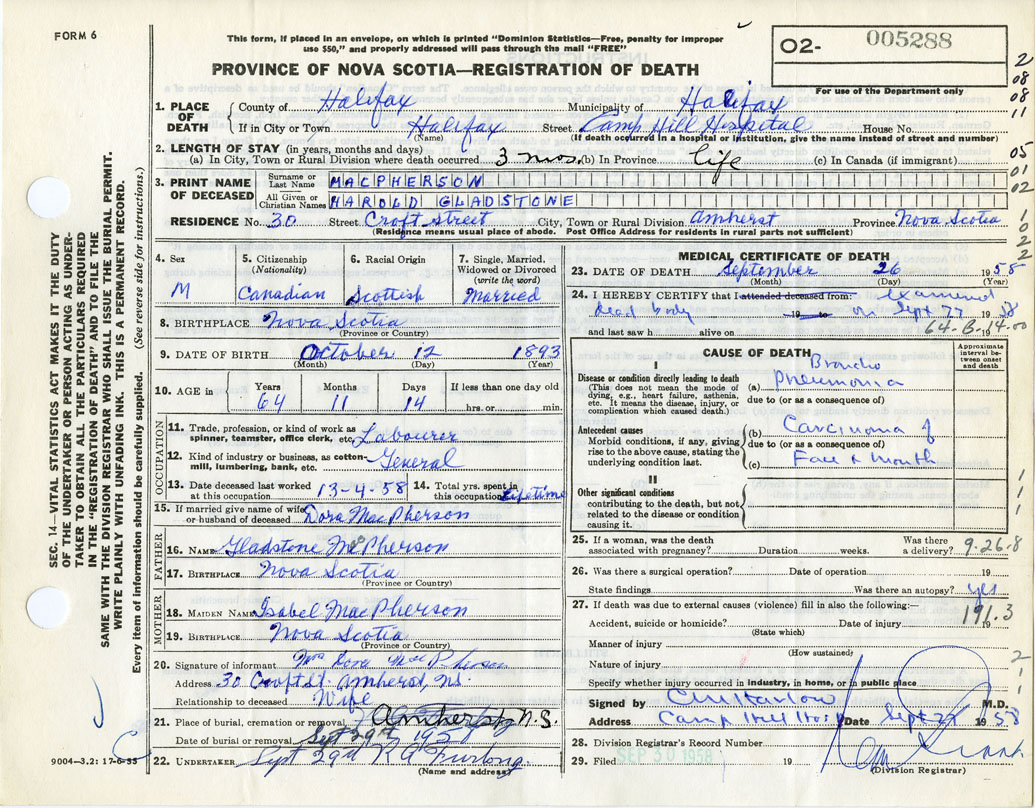 FORM 6
This form, if placed in an envelope, on which is printed "Dominion Statistics—Free, penalty for improper
use $50," and properly addressed will pass through the mail "FREE"
PROVINCE OF NOVA SCOTIA—REGISTRATION OF DEATH
O2- 005288
For use of the Department only
2
08
08
11
1. PLACE OF DEATH
County of Halifax Municipality of Halifax
If in City or Town Halifax Street Camp Hill Hospital House No.
(Name) (If death occurred in a hospital or institution, give the name instead of street and number)
2. LENGTH OF STAY (in years, months and days)
(a) In City, Town or Rural Division where death occurred 3 mos. (b) In Province life (c) In Canada (if immigrant)
05
01
02
3. PRINT NAME OF DECEASED
Surname or Last Name MACPHERSON
All Given or Christian Names HAROLD GLADSTONE
RESIDENCE No. 30 Street Croft Street City, Town or Rural Division Amherst Province Nova Scotia
(Residence means usual place of abode. Post Office Address for residents in rural parts not sufficient)
1
0
2
2
4. Sex
M
5. Citizenship (Nationality)
Canadian
6. Racial Origin
Scottish
7. Single, Married, Widowed or Divorced (write the word)
Married
8. BIRTHPLACE Nova Scotia
(Province or Country)
9. DATE OF BIRTH October 12 1893
(Month) (Day) (Year)
10. AGE in
Years 64
Months 11
Days 14
If less than one day old
hrs. or min.
OCCUPATION
11. Trade, profession, or kind of work as
spinner, teamster, office clerk, etc. Labourer
12. Kind of industry or business, as cotton-
mill, lumbering, bank, etc. General
13. Date deceased last worked
at this occupation 13-4-58
14. Total yrs. spent in
this occupation Lifetime
15. If married give name of wife
or husband of deceased Dora MacPherson
FATHER
16. NAME Gladstone McPherson
17. BIRTHPLACE Nova Scotia
(Province or Country)
MOTHER
18. MAIDEN NAME Isabel MacPherson
19. BIRTHPLACE Nova Scotia
(Province or Country)
20. Signature of informant Mrs Dora MacPherson
Address 30 Croft St. Amherst, N.S.
Relationship to deceased Wife
21. Place of burial, cremation or removal Amherst N.S.
Date of burial or removal Sept 29th 1958
22. UNDERTAKER Sept 29th K A Furlong
(Name and address)
9004—3.2: 17-6-55
MEDICAL CERTIFICATE OF DEATH
23. DATE OF DEATH September 26 1958
(Month) (Day) (Year)
24. I HEREBY CERTIFY that I attended deceased from: examined
dead body 19 to on Sept 27 1958
and last saw h alive on 19
64-B-14.00
CAUSE OF DEATH
Approximate interval between onset and death
I
Disease or condition directly leading to death
(This does not mean the mode of
dying, e.g., heart failure, asthenia,
etc. It means the disease, injury, or
complication which caused death.)
(a) Broncho Pneumonia
due to (or as a consequence of)
Antecedent causes
Morbid conditions, if any, giving
rise to the above cause, stating the
underlying condition last.
(b) Carcinoma of
due to (or as a consequence of)
(c) Face & Mouth
II
Other significant conditions
contributing to the death, but not
related to the disease or condition
causing it.
1
1
1
25. If a woman, was the death
associated with pregnancy? Duration weeks. Was there a delivery?
9-26-8
26. Was there a surgical operation? Date of operation 19
State findings Was there an autopsy? yes
27. If death was due to external causes (violence) fill in also the following:—
191.3
Accident, suicide or homicide? Date of injury 19
(State which)
Manner of injury
(How sustained)
Nature of injury
Specify whether injury occurred in industry, in home, or in public place
2
1
1
Signed by CM Harlow M.D.
Address Camp Hill Hosp Date Sept 27 1958
28. Division Registrar's Record Number
29. Filed SEP 30 1958 19
(Division Registrar)
SEC. 14—VITAL STATISTICS ACT MAKES IT THE DUTY
OF THE UNDERTAKER OR PERSON ACTING AS UNDER-
TAKER TO OBTAIN ALL THE PARTICULARS REQUIRED
IN THE "REGISTRATION OF DEATH" AND TO FILE THE
SAME WITH THE DIVISION REGISTRAR WHO SHALL ISSUE THE BURIAL PERMIT.
WRITE PLAINLY WITH UNFADING INK. THIS IS A PERMANENT RECORD.
Every item of information should be carefully supplied. (See reverse side for instructions.)